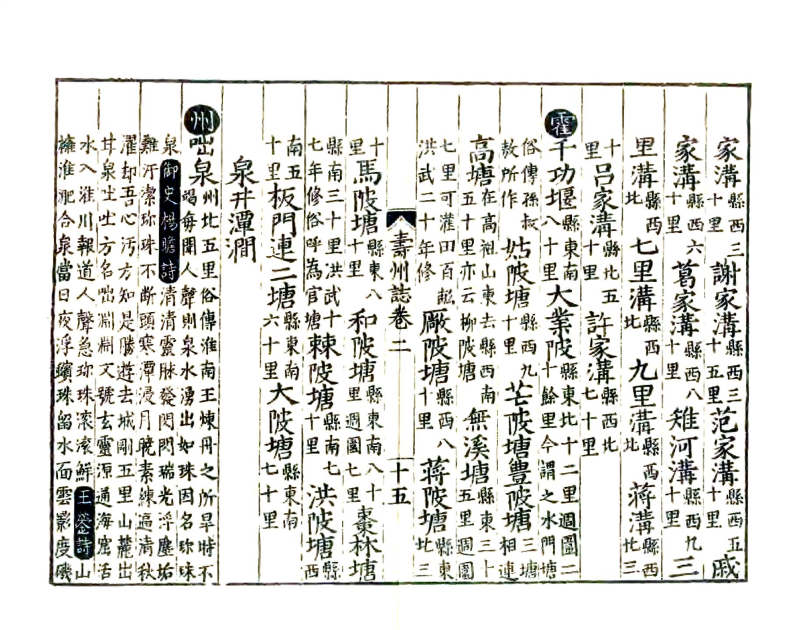 家溝縣西三十里謝家溝縣西三十五里范家溝縣西五十里戚
家溝縣西六十里葛家溝縣西八十里雉河溝縣西九十里三
里溝縣西北七里溝縣西北九里溝縣西北蔣溝縣西北三
十里呂家溝縣北五十里許家溝縣西北七十里
霍千功堰縣東南八十里大業陂縣東北十二里週圍二十餘里今謂之水門塘
俗傳孫叔敖所作姑陂塘縣西九十里芒陂塘豊陂塘三塘相連
高塘在高祖山東去縣西南五十里亦云柳陂塘無溪塘縣東三十五里週圍
七里可灌田百𩔖洪武二十年修廠陂塘縣西八十里蔣陂塘縣東北三
壽州誌卷二 十五
十里馬陂塘縣東八十里和陂塘縣東南八十里週圍七里棗林塘
縣南三十里洪武十七年修俗呼為官塘棘陂塘縣南七十里洪陂塘縣西
南五十里板門連二塘縣東南六十里大陂塘縣東南七十里
泉井潭澗
州咄泉州北五里俗傳淮南王煉丹之所旱時不竭每聞人聲則泉水湧出如珠因名珍珠
泉御史楊瞻詩清清靈脉發閃閃瑞光浮塵垢難汙潔珍珠不斷頭寒潭浸月曉素練逼清秋
濯却吾心汚方知是勝遊去城剛五里山麓出甘泉吐吐方名咄淵淵又號玄靈源通海窟活
水入淮川報道人聲急珍珠滾滾鮮王鎣詩山擁淮淝合泉當日夜浮蠙珠留水面雲影度磯